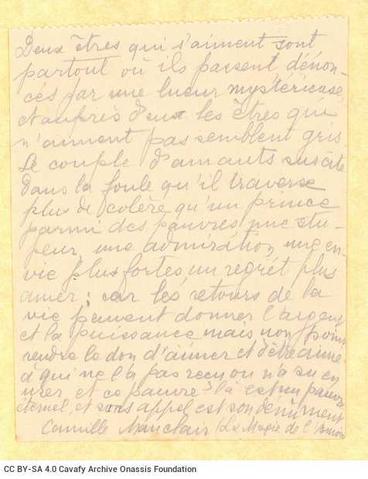 Deux êtres qui s'aiment sont
partout où ils passent dénon-
cés par une lueur mystérieuse
et auprès d'eux les êtres qui
n'aiment pas semblent gris
Le couple d'amants suscite
dans la foule qu'il traverse
plus de colère qu'un prince
parmi des pauvres une stu-
peur, une admiration une en-
vie plus fortes un regret plus
amer: car les retours de la
vie peuvent donner l'argent
et la puissance mais non point
rendre le don d'aimer et d'être aimé
à qui ne l'a pas reçu ou n'a su en
user, et ce pauvre-là est un pauvre
éternel, et sans appel est son dénûment
Camille Mauclair (La Magie de l'Amour
CC BY-SA 4.0 Cavafy Archive Onassis Foundation